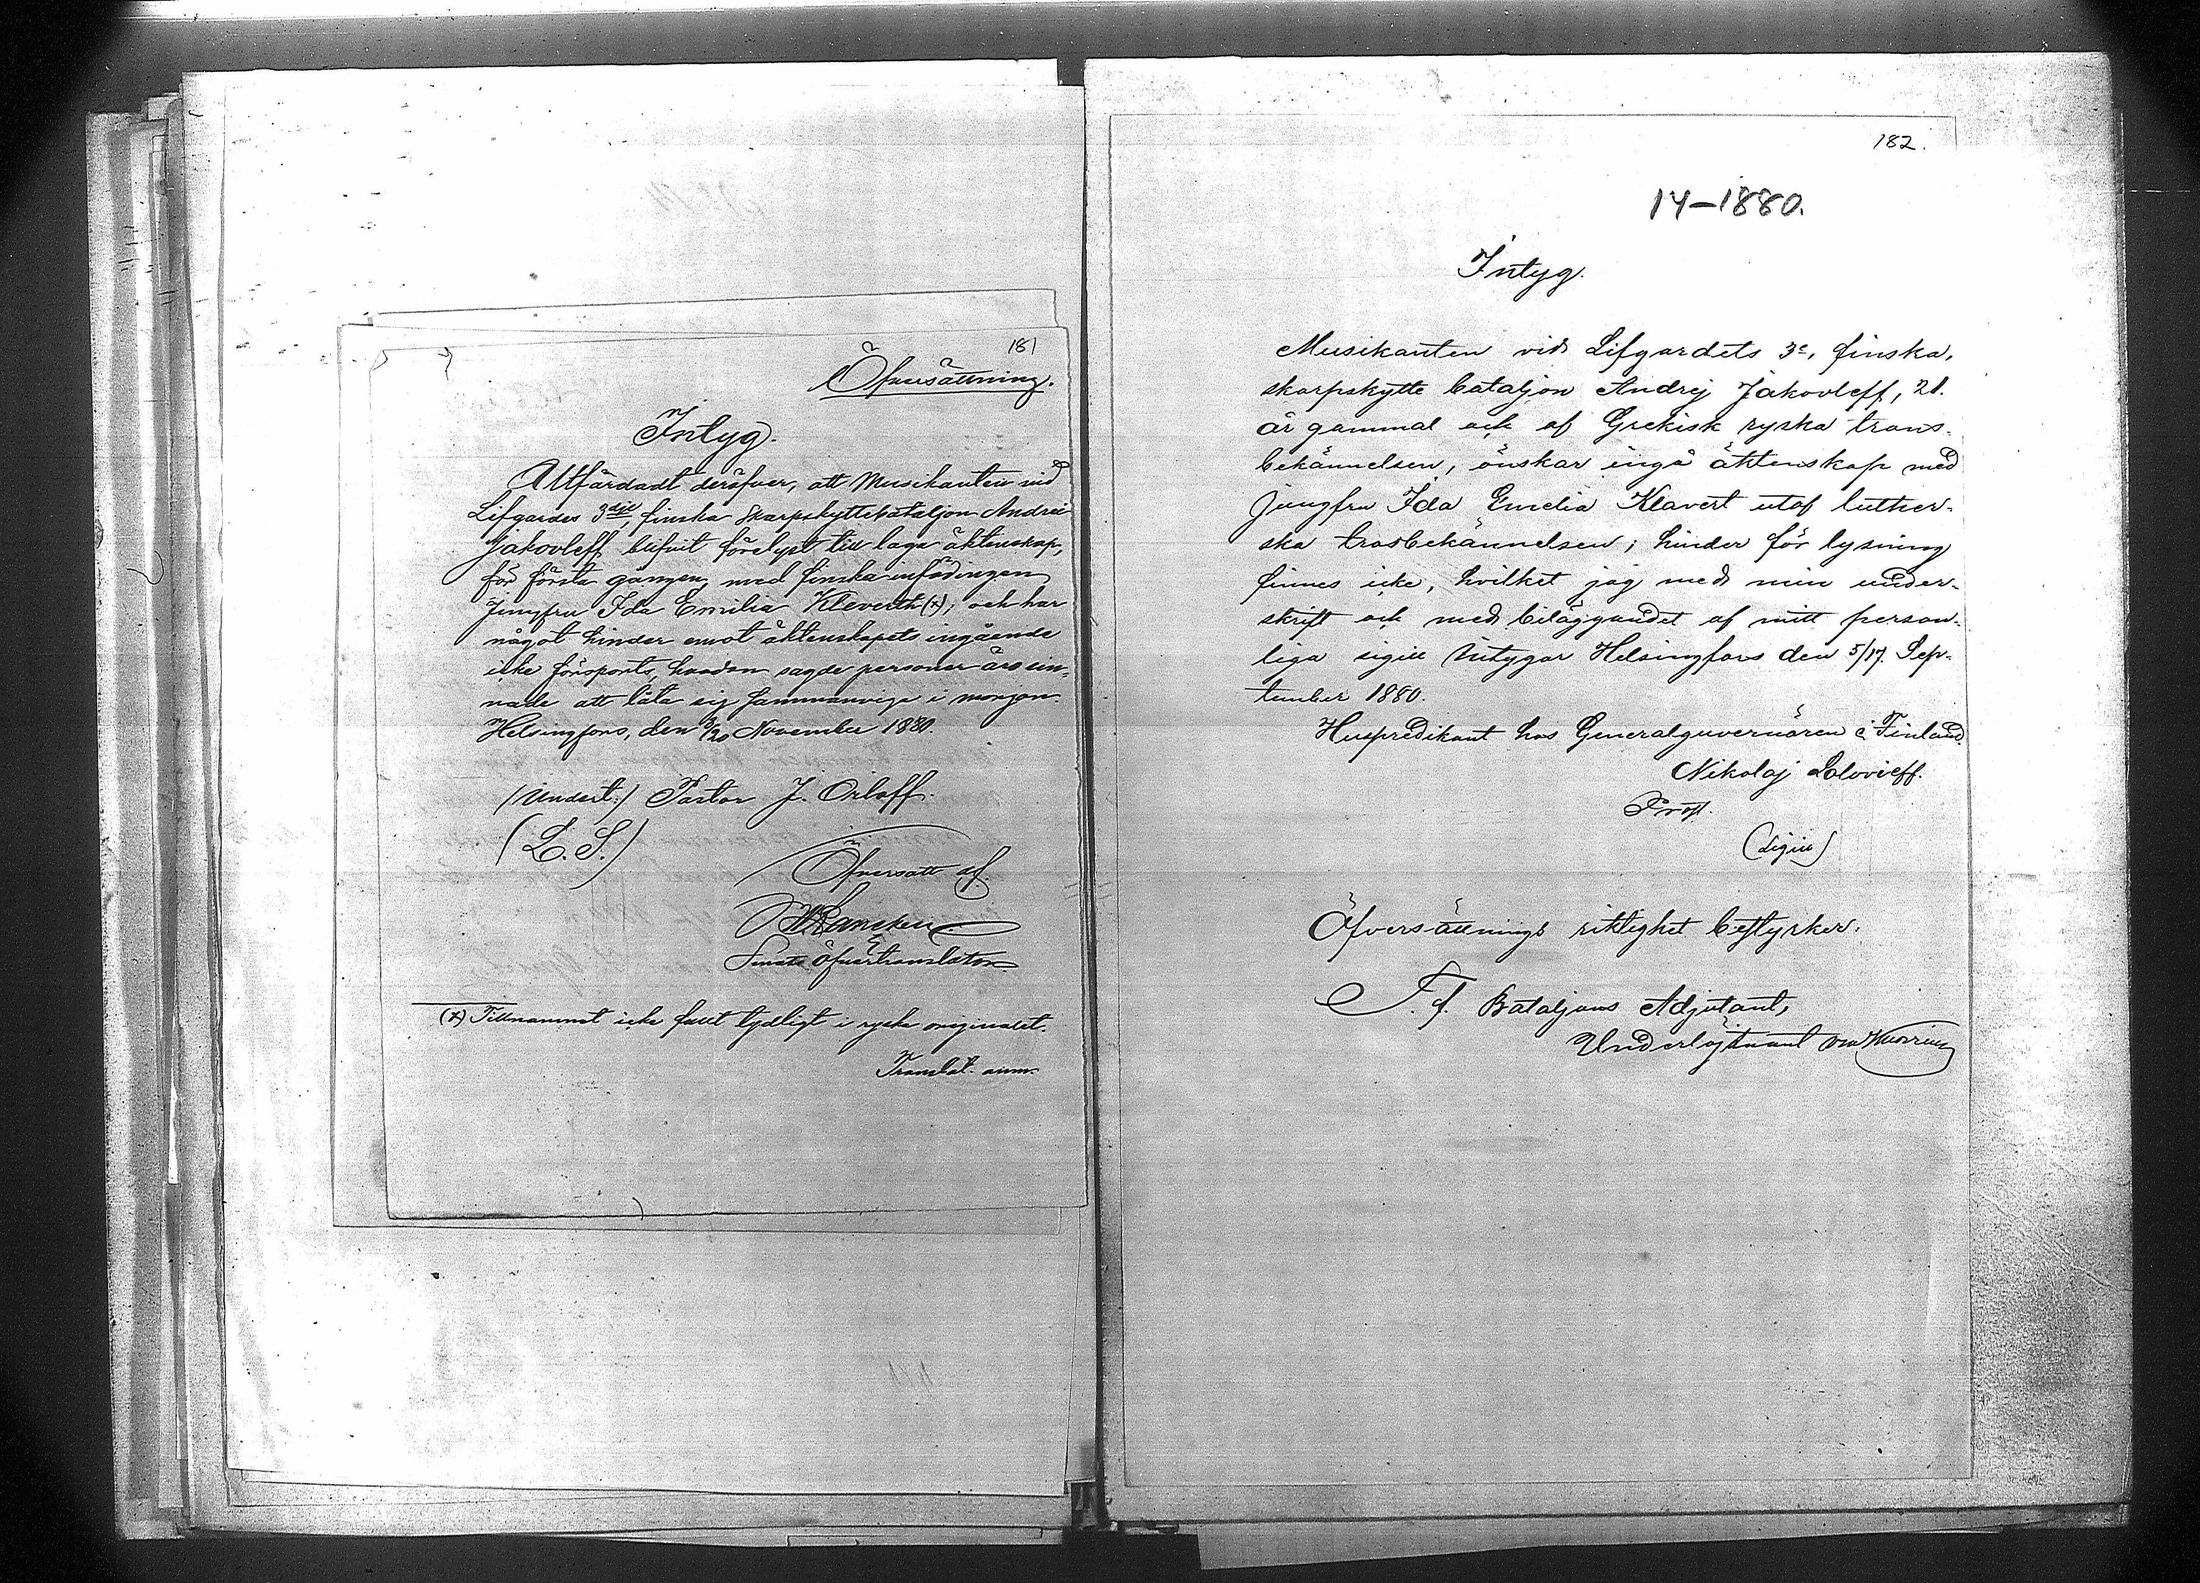 181
Öfversättning.
Intyg.
Utfärdadt deröfver, att Musikanten vid
Lifgardes 3dje finska Skarpskyttebataljon Andrei
Jakovleff blifvit förelyst till laga äktenskap,
för första gången, med finska infödingen
Jungfru Ida Emilia Kleverth (x), och har
något hinder emot äktenskapets ingående
icke försports, hvadan sagde personer äro sin-
nade att låta sig sammanviga i morgon.
Helsingfors, den 8/20 November 1880.
(Undert.) Pastor J. Orloff.
(L. S.)
Öfversatt af
Senats Öfvertranslator
(x) Tillnamnet icke fullt tydligt i ryska originalet.
Translat. anm.
182.
14-1880.
Intyg.
Musikanten vid Lifgardets 3e, finska,
skarpskytte bataljon Andrej Jakovleff, 21.
år gammal och af Grekisk ryska trans-
bekännelsen, önskar ingå äktenskap med
jungfru Ida Emelia Klavert utaf luther-
ska trosbekännelsen; hinder för lysning
finnes icke, hvilket jag med min under-
skrift och med biläggandet af mitt person-
liga sigill intygar Helsingfors den 5/17. Sep-
tember 1880.
Huspredikant hos Generalguvernören i Finland.
Nikolaj Solovieff.
Prost.
(Sigill)
Öfversättnings riktighet bestyrker.
T. f. Bataljons Adjutant,
Underlöjtnant von